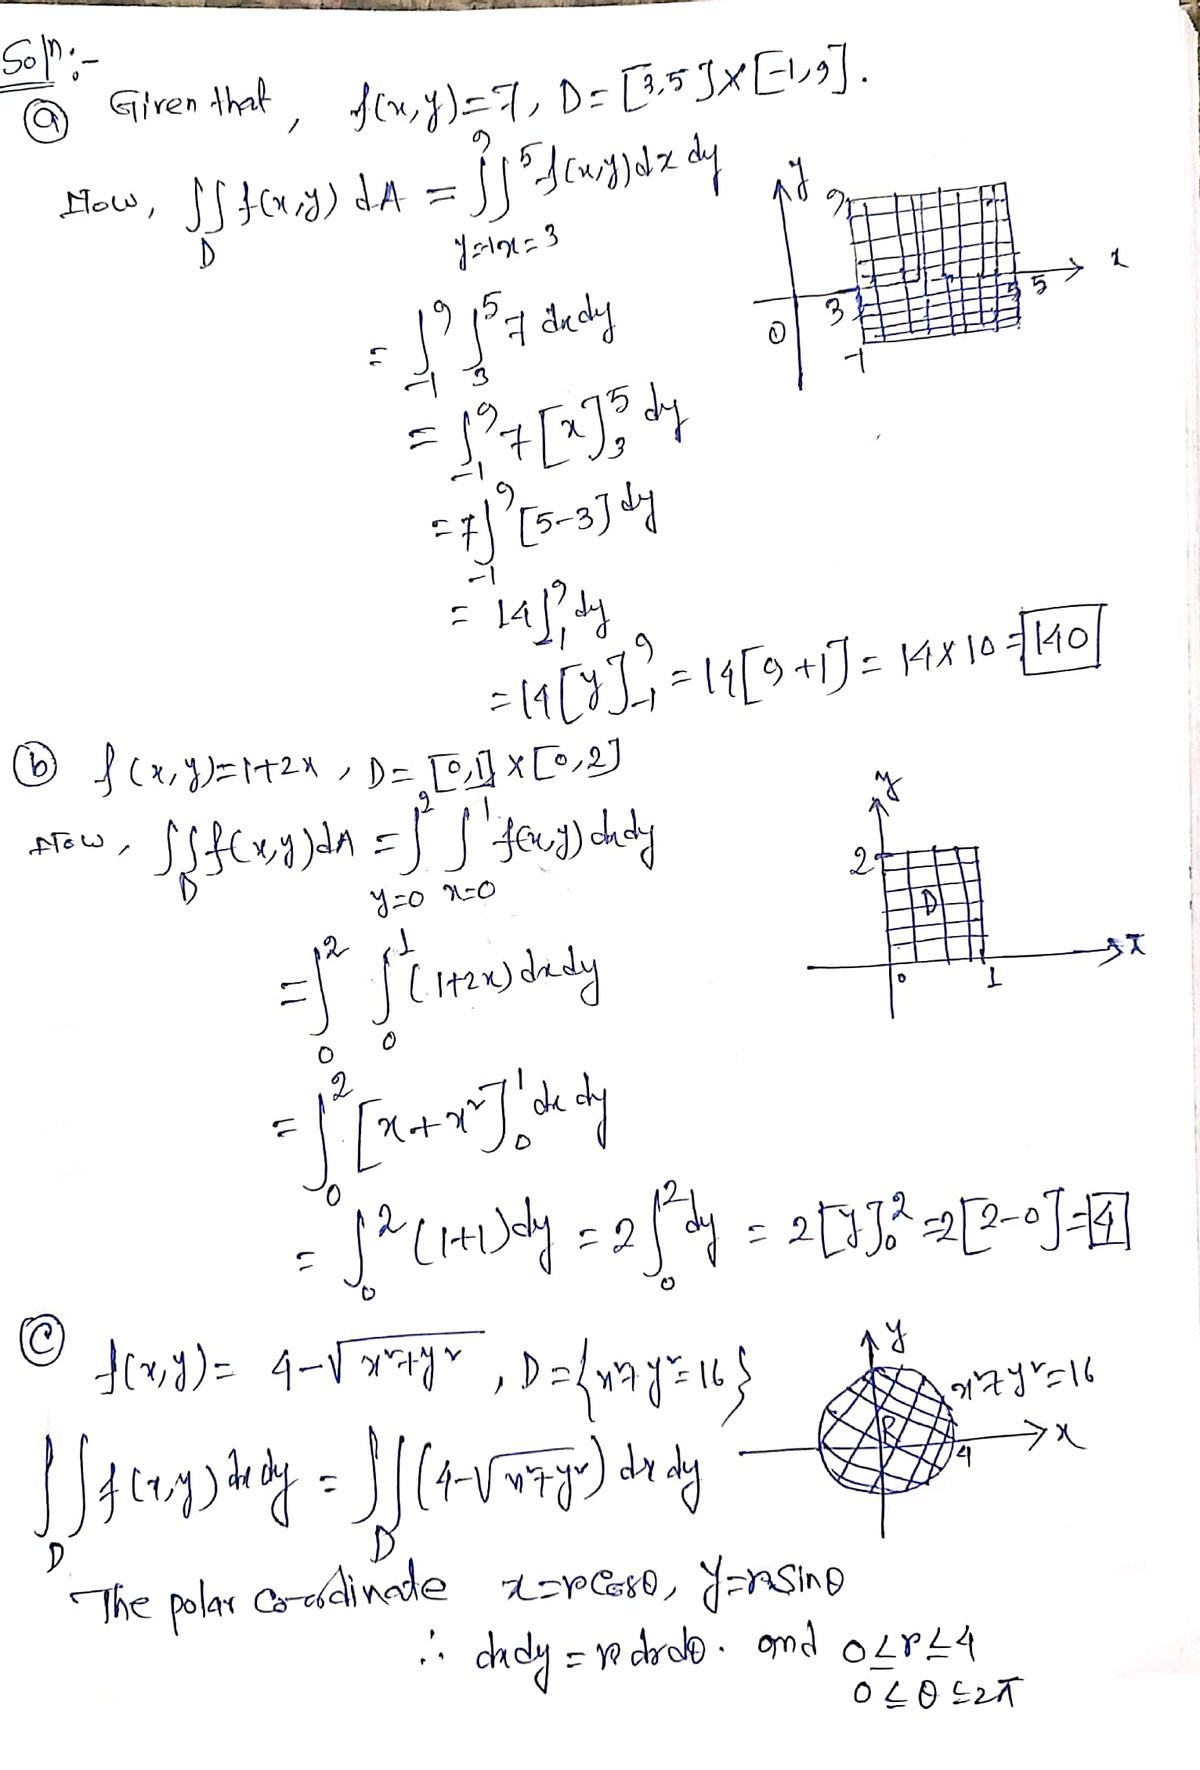 Solⁿ:-
ⓐ Given that, f(x,y)=7, D=[3,5]×[-1,9].
Now, ∬_D f(x,y) dA = ∫_{y=-1}^{9} ∫_{x=3}^{5} f(x,y) dx dy
= ∫_{-1}^{9} ∫_{3}^{5} 7 dx dy
= ∫_{-1}^{9} 7 [x]_{3}^{5} dy
= 7∫_{-1}^{9} [5-3] dy
= 14∫_{-1}^{9} dy
= 14[y]_{-1}^{9} = 14[9+1] = 14×10 = 140
y
9
x
0
3
5
5
-1
ⓑ f(x,y)=1+2x, D=[0,1]×[0,2]
Now, ∬_D f(x,y)dA = ∫_{y=0}^{2} ∫_{x=0}^{1} f(x,y) dxdy
= ∫_{0}^{2} ∫_{0}^{1} (1+2x) dxdy
= ∫_{0}^{2} [x+x²]_{0}^{1} dx dy
= ∫_{0}^{2} (1+1)dy = 2∫_{0}^{2} dy = 2[y]_{0}^{2} = 2[2-0] = 4
y
2
D
x
0
1
ⓒ f(x,y) = 4-√(x²+y²), D={x²+y²=16}
∬_D f(x,y) dx dy = ∬_D (4-√(x²+y²)) dx dy
y
x²+y²=16
R
x
4
The polar co-ordinate x=rcosθ, y=rsinθ
∴ dxdy = r drdθ. and 0≤r≤4
0≤θ≤2π